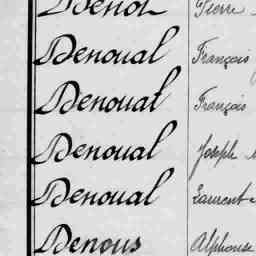 Benot Pierre
Benoual François
Benoual François
Benoual Joseph
Benoual Laurent
Benous Alphonse